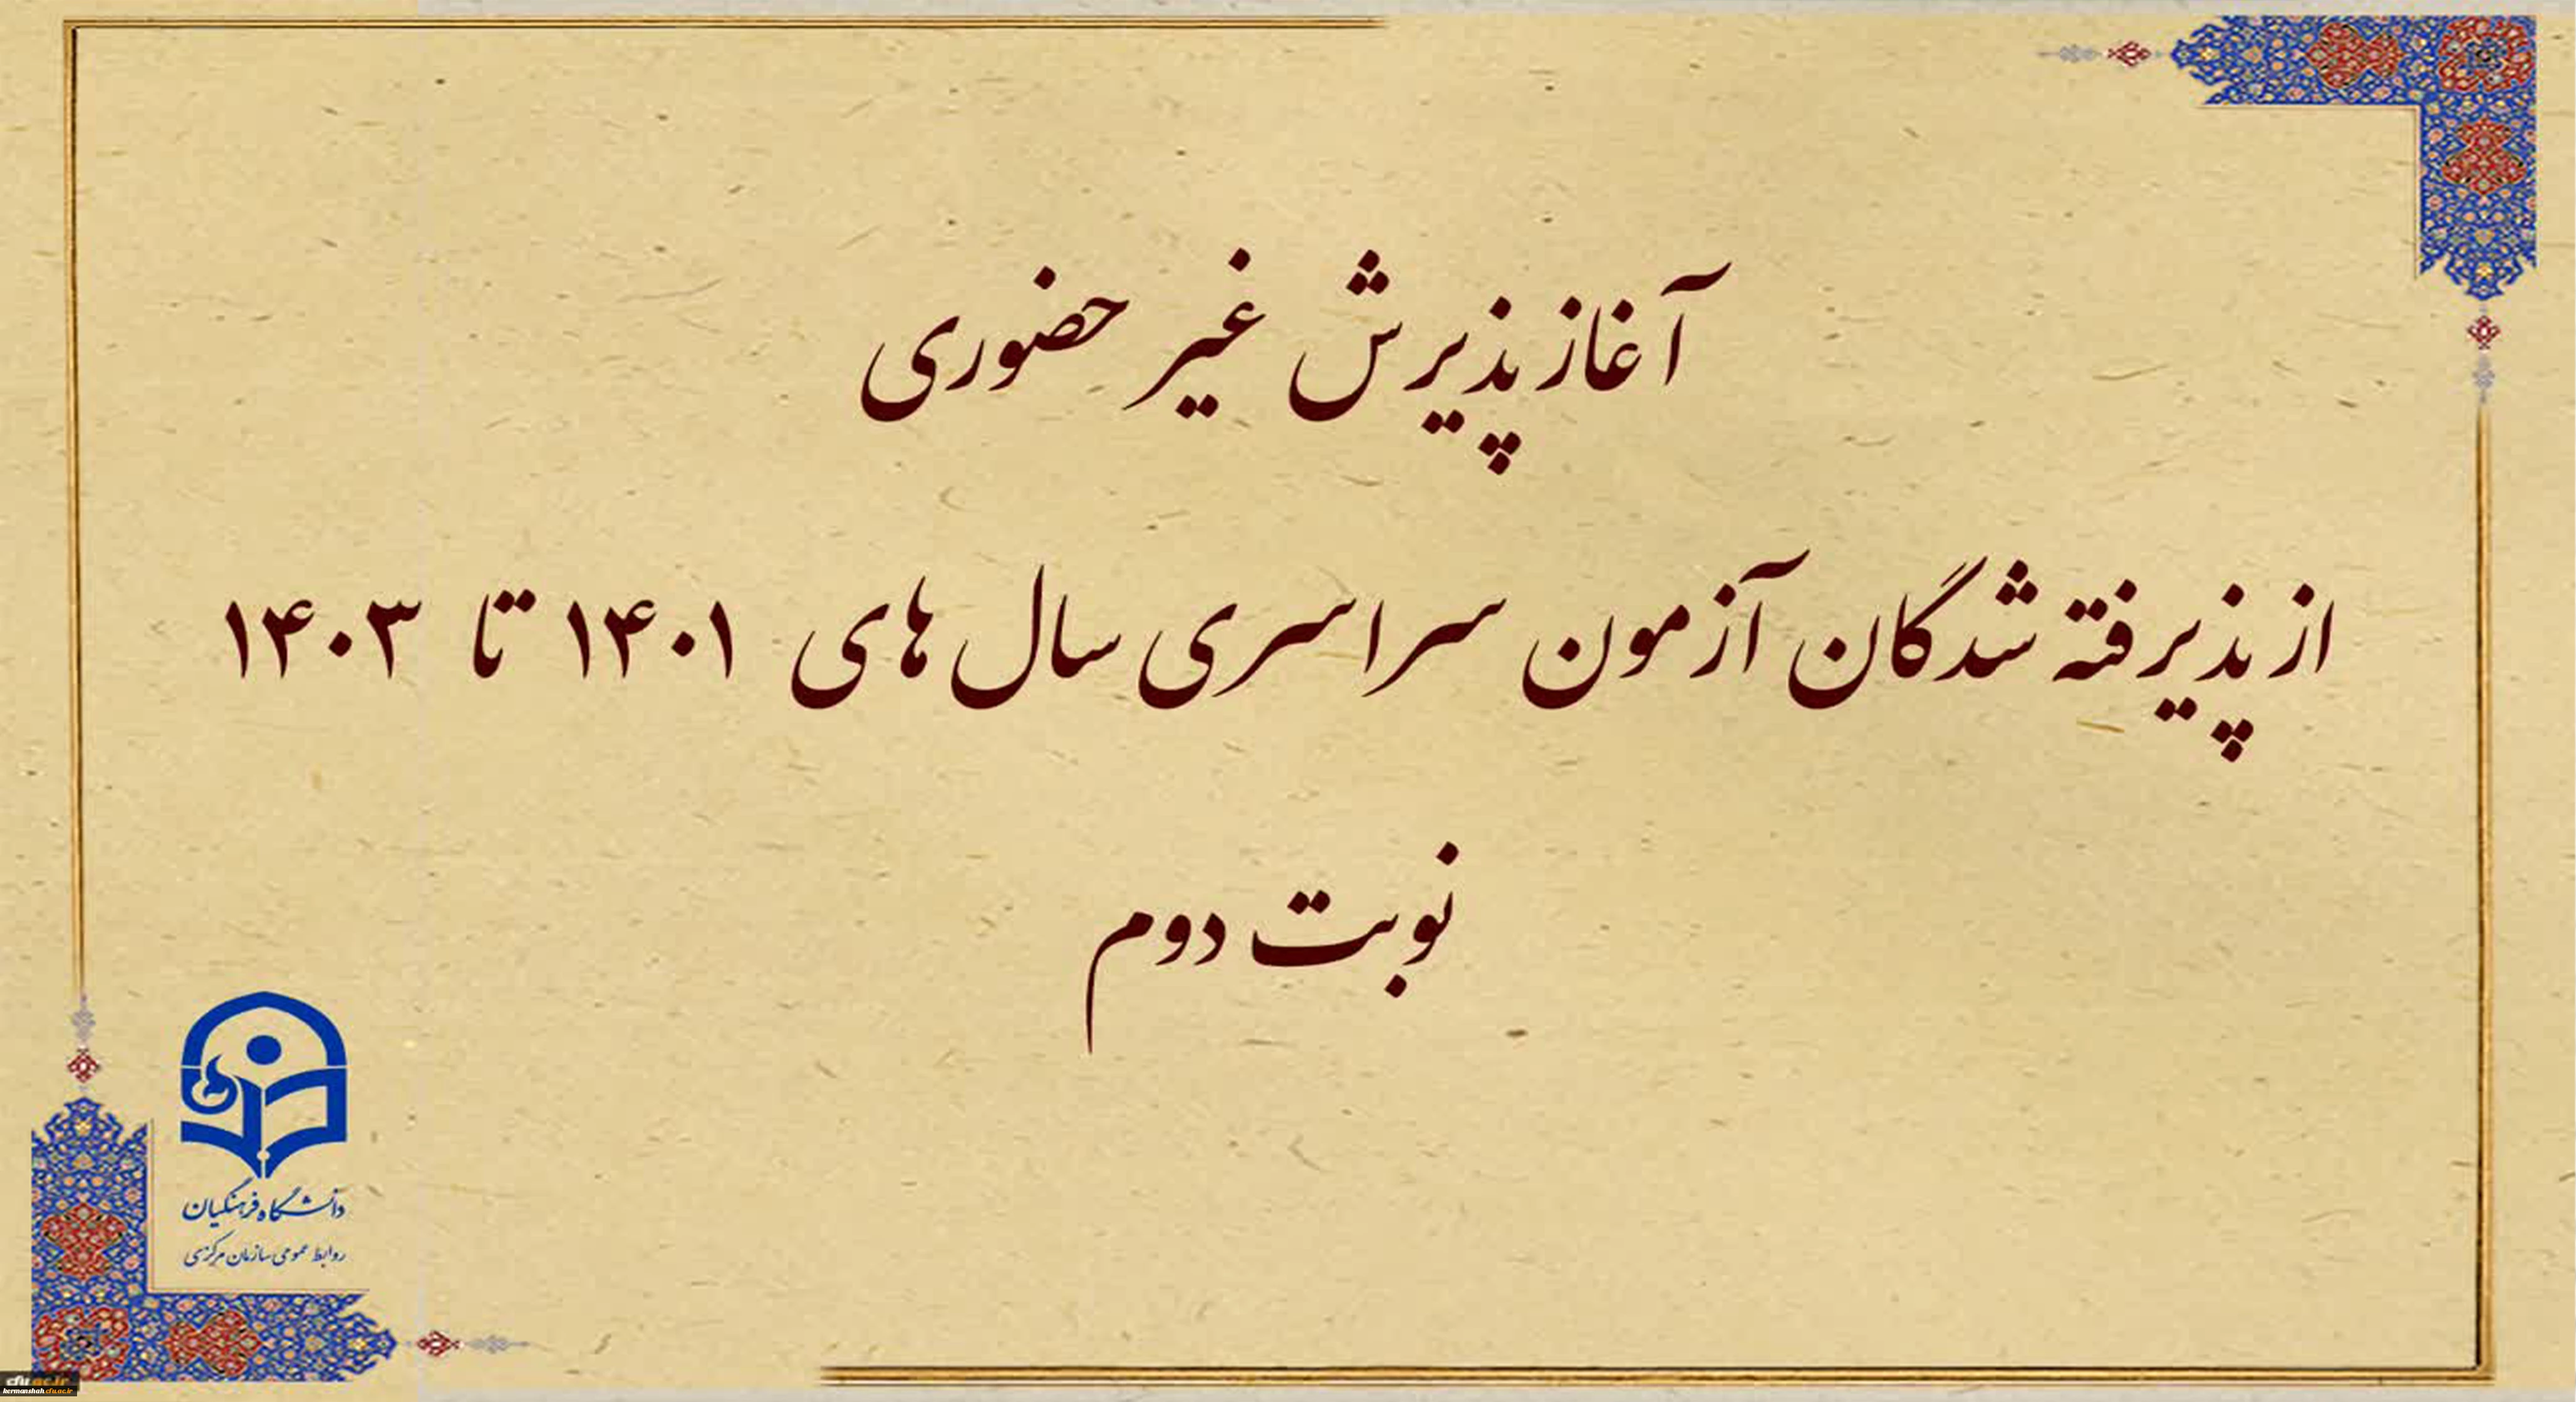 آغاز پذیرش غیر حضوری
از پذیرفته شدگان آزمون سراسری سال های ۱۴۰۱ تا ۱۴۰۳
نوبت دوم
دانشگاه فرهنگیان
روابط عمومی سازمان مرکزی
cfu.ac.ir
kermanshah.cfu.ac.ir